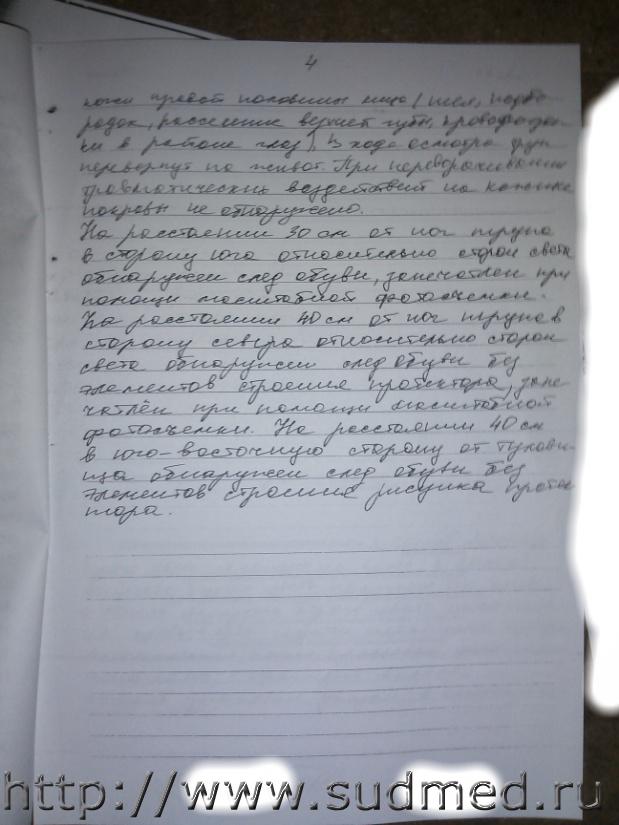 4
кожи правой половины лица (шея, подбо-
родок, рассечение верхней губы, кровоподте-
ки в районе глаз). В ходе осмотра труп
перевернут на живот. При переворачивании
травматических воздействий на кожные
покровы не обнаружено.
На расстоянии 30 см от ног трупа
в сторону юга относительно сторон света
обнаружен след обуви, запечатлен при
помощи масштабной фотосъемки.
На расстоянии 40 см от ног трупа в
сторону севера относительно сторон
света обнаружен след обуви без
элементов строения протектора, запе-
чатлён при помощи масштабной
фотосъемки. На расстоянии 40 см
в юго-восточную сторону от тулови-
ща обнаружен след обуви без
элементов строения рисунка протек
тора.
http://www.sudmed.ru